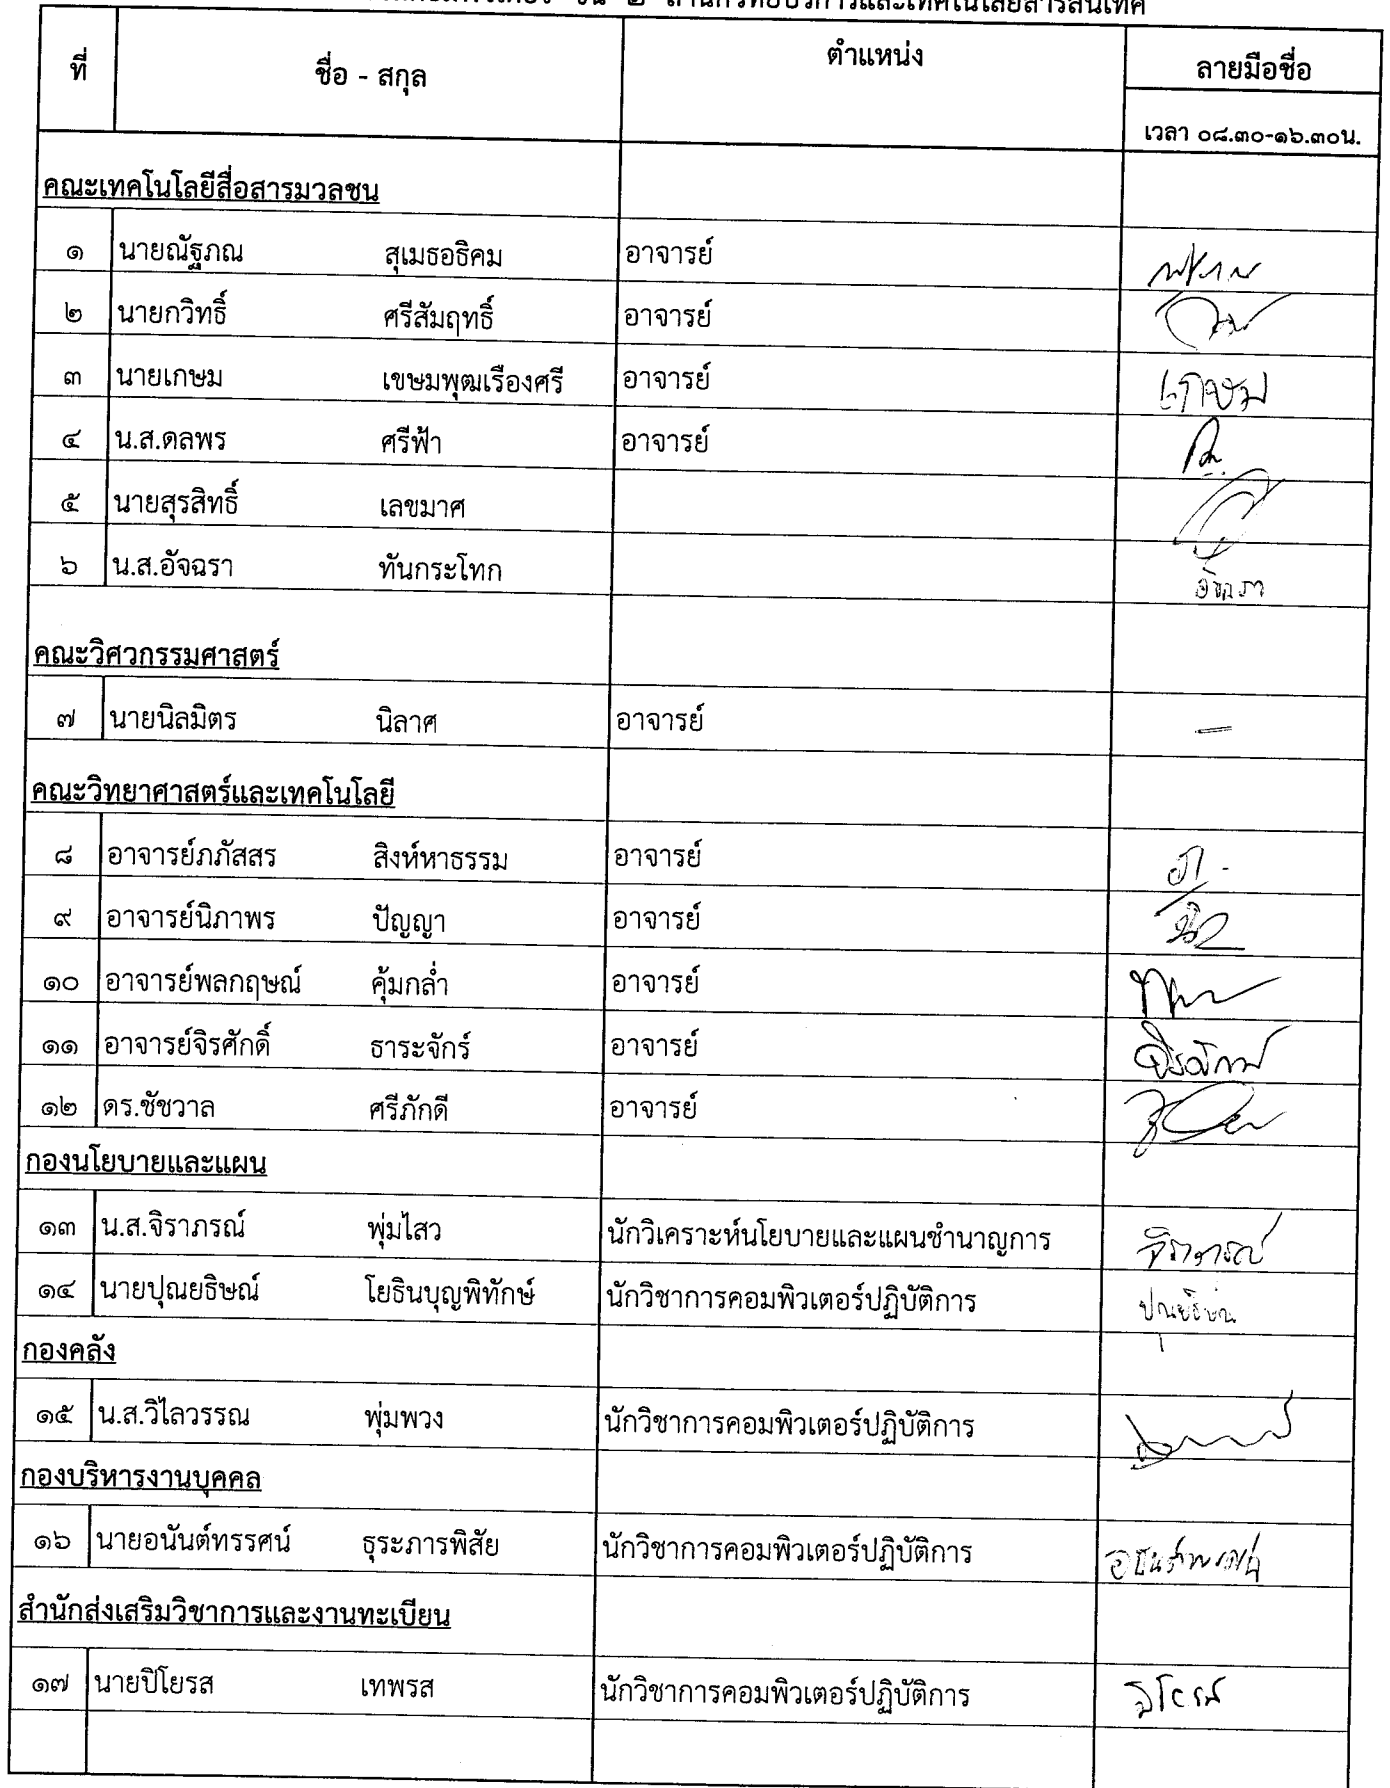 ชั้น ๒ สำนักวิทยบริการและเทคโนโลยีสารสนเทศ
ที่ ชื่อ - สกุล ตำแหน่ง ลายมือชื่อ
เวลา ๐๘.๓๐-๑๖.๓๐น.
คณะเทคโนโลยีสื่อสารมวลชน
๑ นายณัฐภณ สุเมธอธิคม อาจารย์
๒ นายกวิทธิ์ ศรีสัมฤทธิ์ อาจารย์
๓ นายเกษม เขษมพุฒเรืองศรี อาจารย์ เกษม
๔ น.ส.ดลพร ศรีฟ้า อาจารย์
๕ นายสุรสิทธิ์ เลขมาศ
๖ น.ส.อัจฉรา ทันกระโทก อัจฉรา
คณะวิศวกรรมศาสตร์
๗ นายนิลมิตร นิลาศ อาจารย์ -
คณะวิทยาศาสตร์และเทคโนโลยี
๘ อาจารย์ภภัสสร สิงห์หาธรรม อาจารย์
๙ อาจารย์นิภาพร ปัญญา อาจารย์
๑๐ อาจารย์พลกฤษณ์ คุ้มกล่ำ อาจารย์
๑๑ อาจารย์จิรศักดิ์ ธาระจักร์ อาจารย์
๑๒ ดร.ชัชวาล ศรีภักดี อาจารย์
กองนโยบายและแผน
๑๓ น.ส.จิราภรณ์ พุ่มไสว นักวิเคราะห์นโยบายและแผนชำนาญการ จิราภรณ์
๑๔ นายปุณยธิษณ์ โยธินบุญพิทักษ์ นักวิชาการคอมพิวเตอร์ปฏิบัติการ ปุณยธิษณ์
กองคลัง
๑๕ น.ส.วิไลวรรณ พุ่มพวง นักวิชาการคอมพิวเตอร์ปฏิบัติการ
กองบริหารงานบุคคล
๑๖ นายอนันต์ทรรศน์ ธุระภารพิสัย นักวิชาการคอมพิวเตอร์ปฏิบัติการ อนันต์ทรรศน์
สำนักส่งเสริมวิชาการและงานทะเบียน
๑๗ นายปิโยรส เทพรส นักวิชาการคอมพิวเตอร์ปฏิบัติการ ปิโยรส